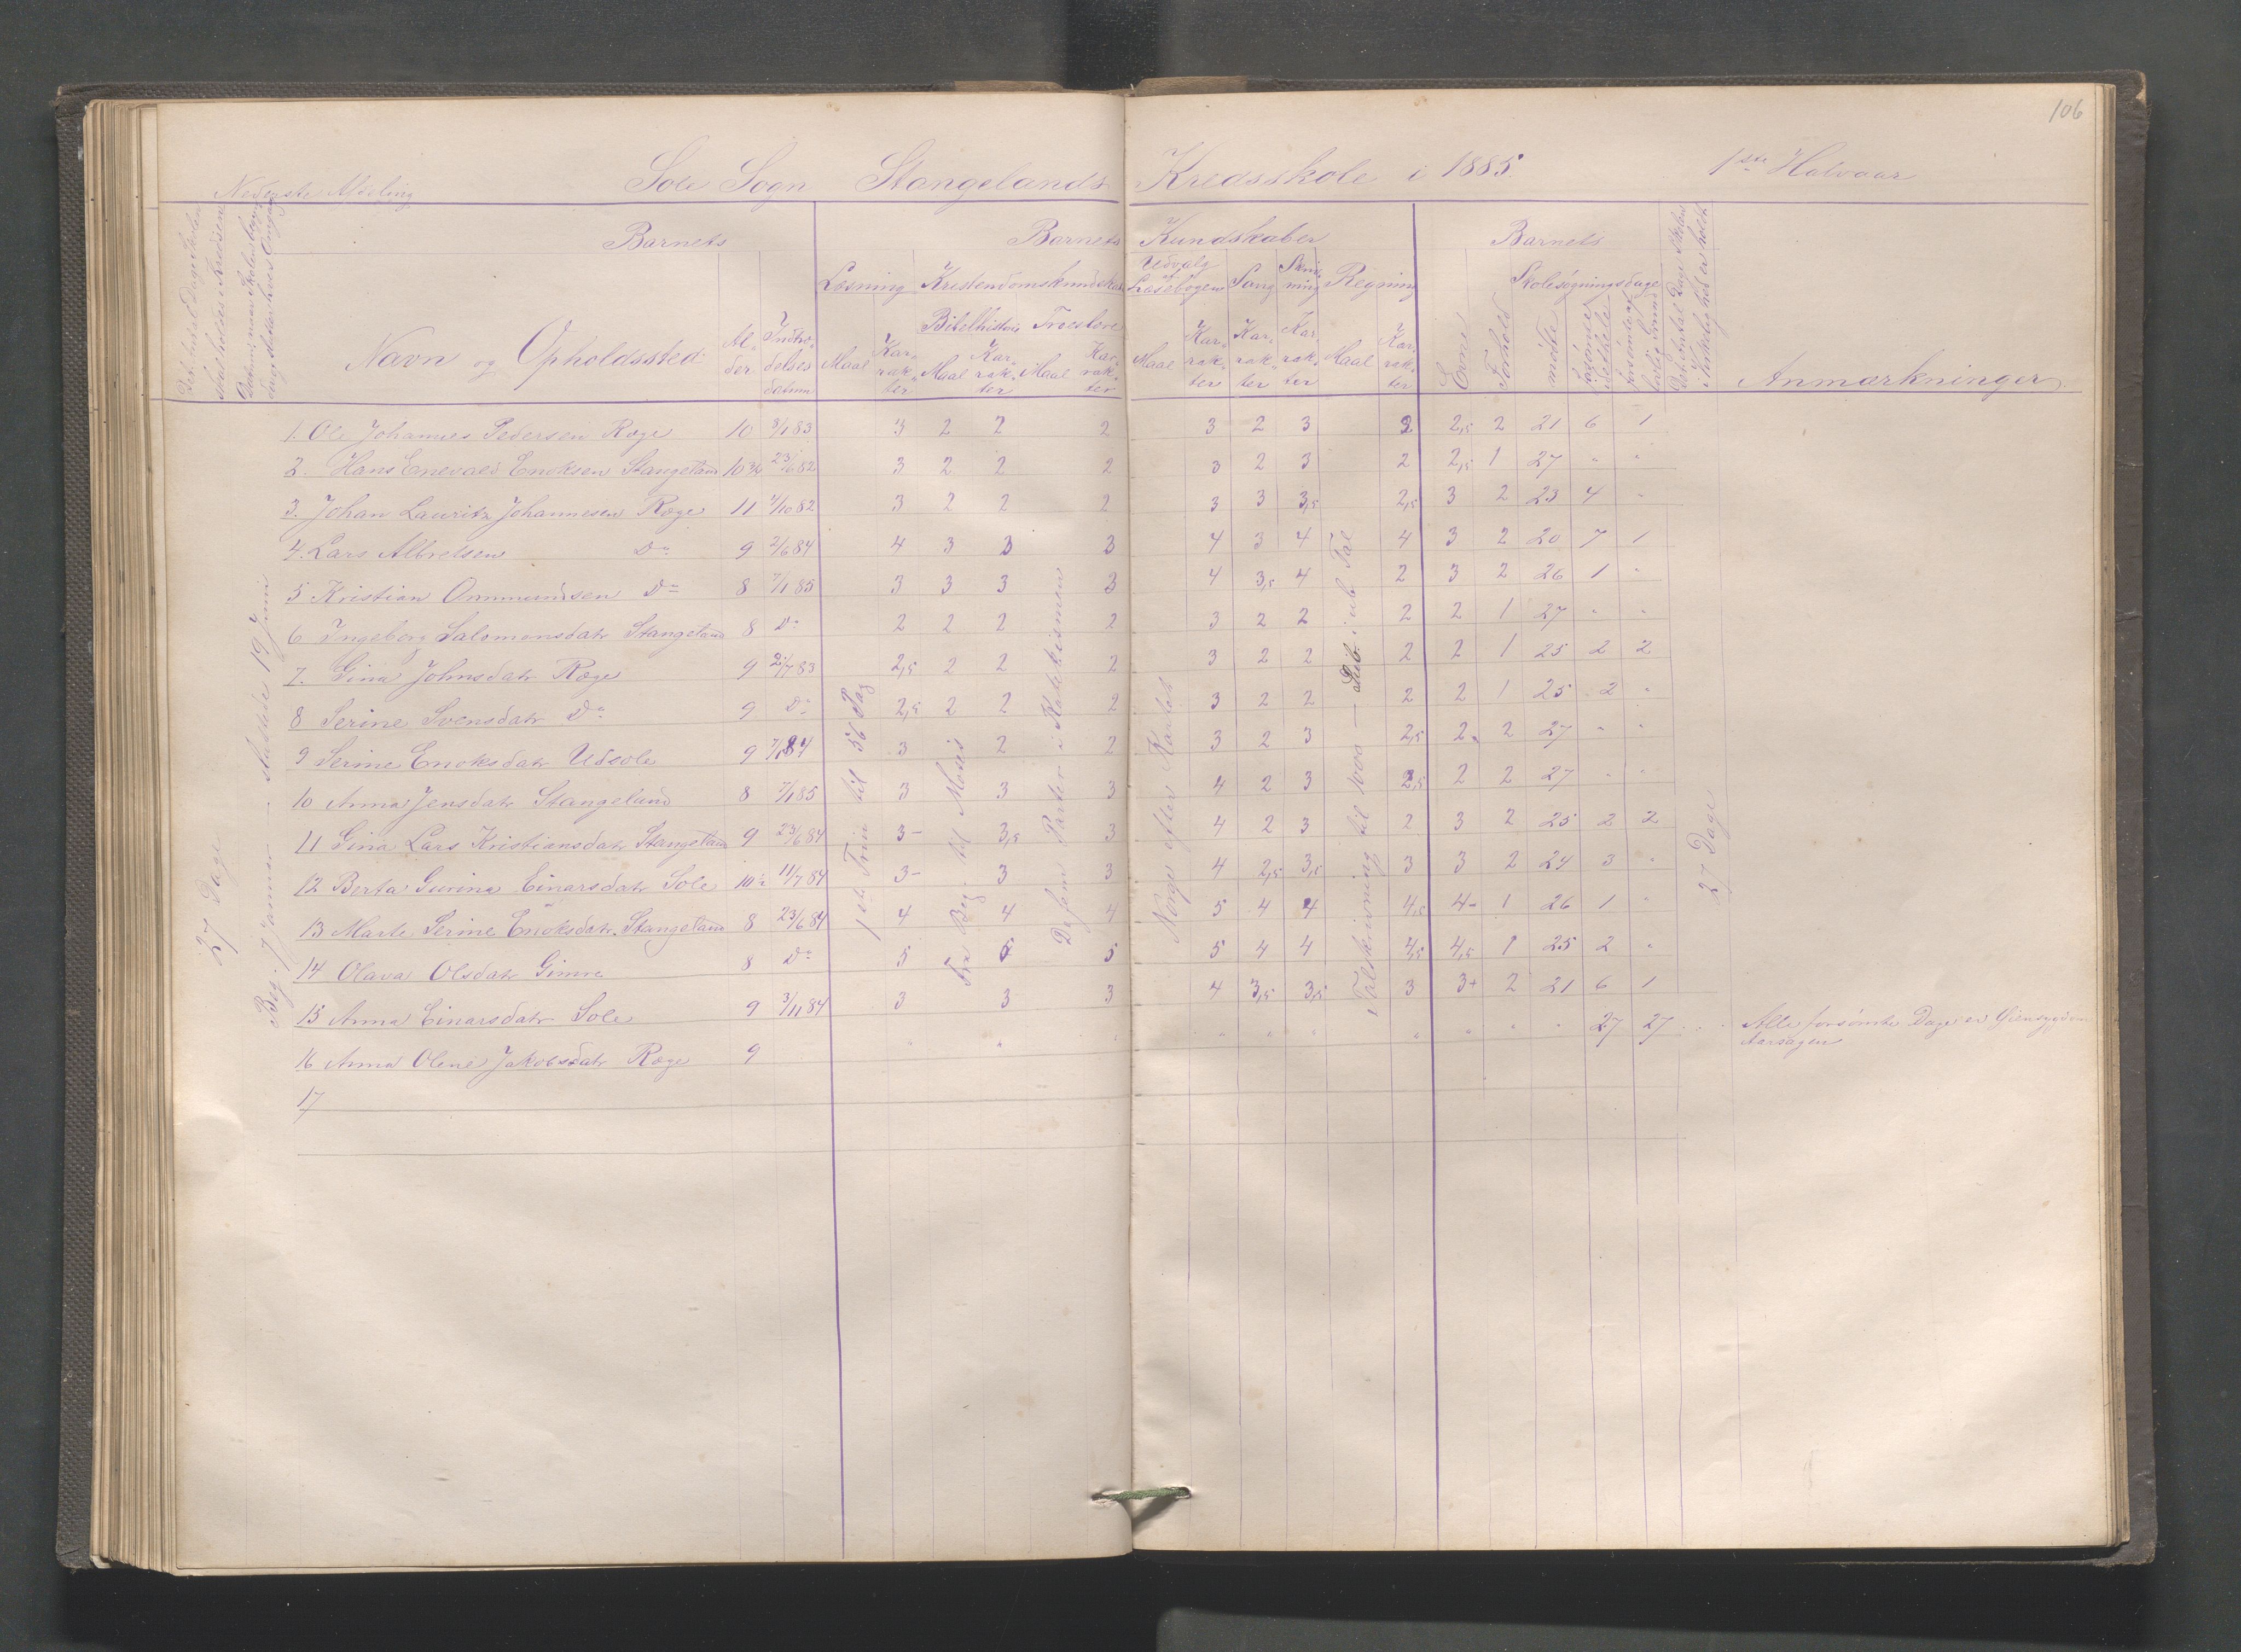 106
Nederste Afdeling
Sole Sogn Stangelands Kredsskole i 1885. 1ste Halvaar
Barnets
Barnets Kundskaber
Barnets
Læsning Kristendomskundskab Udvalg af Læsebogen Sang Skrivning Regning
Skolesøgningsdage
Bibelhistorie Troeslære
Navn og Opholdssted
Alder Indtrædelses datum Maal Karakter Maal Karakter Maal Karakter Maal Karakter Karakter Karakter Maal Karakter Evne Forhold mødte Anmærkninger.
1. Ole Johannes Pedersen Ræge 10 8/1 83 3 2 2 2 3 2 3 2 2,5 2 21 6 1
2. Hans Enevald Enoksen Stangeland 10 3/4 23/6 82 3 2 2 2 3 2 3 2 2,5 1 27 " "
3. Johan Lauritz Johannesen Ræge 11 4/10 82 3 2 2 2 3 3 3,5 2,5 3 2 23 4 "
4. Lars Albretsen Do 9 2/6 84 4 3 3 3 4 3 4 4 3 2 20 7 1
5 Kristian Ommundsen Do 8 7/1 85 3 3 3 3 4 3,5 4 2 3 2 26 1 "
6 Ingeborg Salomonsdatr Stangeland 8 Do 2 2 2 2 3 2 2 2 2 1 27 " "
7. Gina Johnsdatr Ræge 9 2/7 83 2,5 2 2 2 3 2 2 2 2 1 25 2 2
8 Serine Svensdatr Do 9 Do 2,5 2 2 2 3 2 2 2 2 1 25 2 "
9 Serine Enoksdatr Udsole 9 7/1 84 3 2 2 3 2 3 2,5 2 2 27 " "
10 Anna Jensdatr Stangeland 8 7/1 85 3 3 3 4 2 3 2,5 2 2 27 " "
11 Gina Lars Kristiansdatr Stangeland 9 23/6 84 3- 3,5 3 4 2 3 2 3 2 25 2 2
12 Berta Gurina Einarsdatr Sole 10 1/2 11/7 84 3- 3 3 4 2,5 3,5 3 3 2 24 3 "
13 Marte Serine Enoksdatr. Stangeland 8 23/6 84 4 4 4 5 4 4 4,5 4- 1 26 1 "
14 Olava Olsdatr Gimre 8 Do 5 5 5 5 4 4 4,5 4,5 1 25 2 "
15 Anna Einarsdatr Sole 9 3/11 84 3 3 3 4 3,5 3,5 3 3+ 2 21 6 1
16 Anna Olene Jakobsdatr Ræge 9 " " " " " " " " " 27 27 Alle forsømte Dage er Øiensygdom Aarsagen
17
27 Dage
Beg. 7 Januar — sluttede 19 Juni
1ste Trin til 56 Pag
Fra Beg. til Moses
De fem Parter i Katekismen
Norge efter Kartet
Talskrivning til 1000 — Sub. i ub. Tal
27 Dage